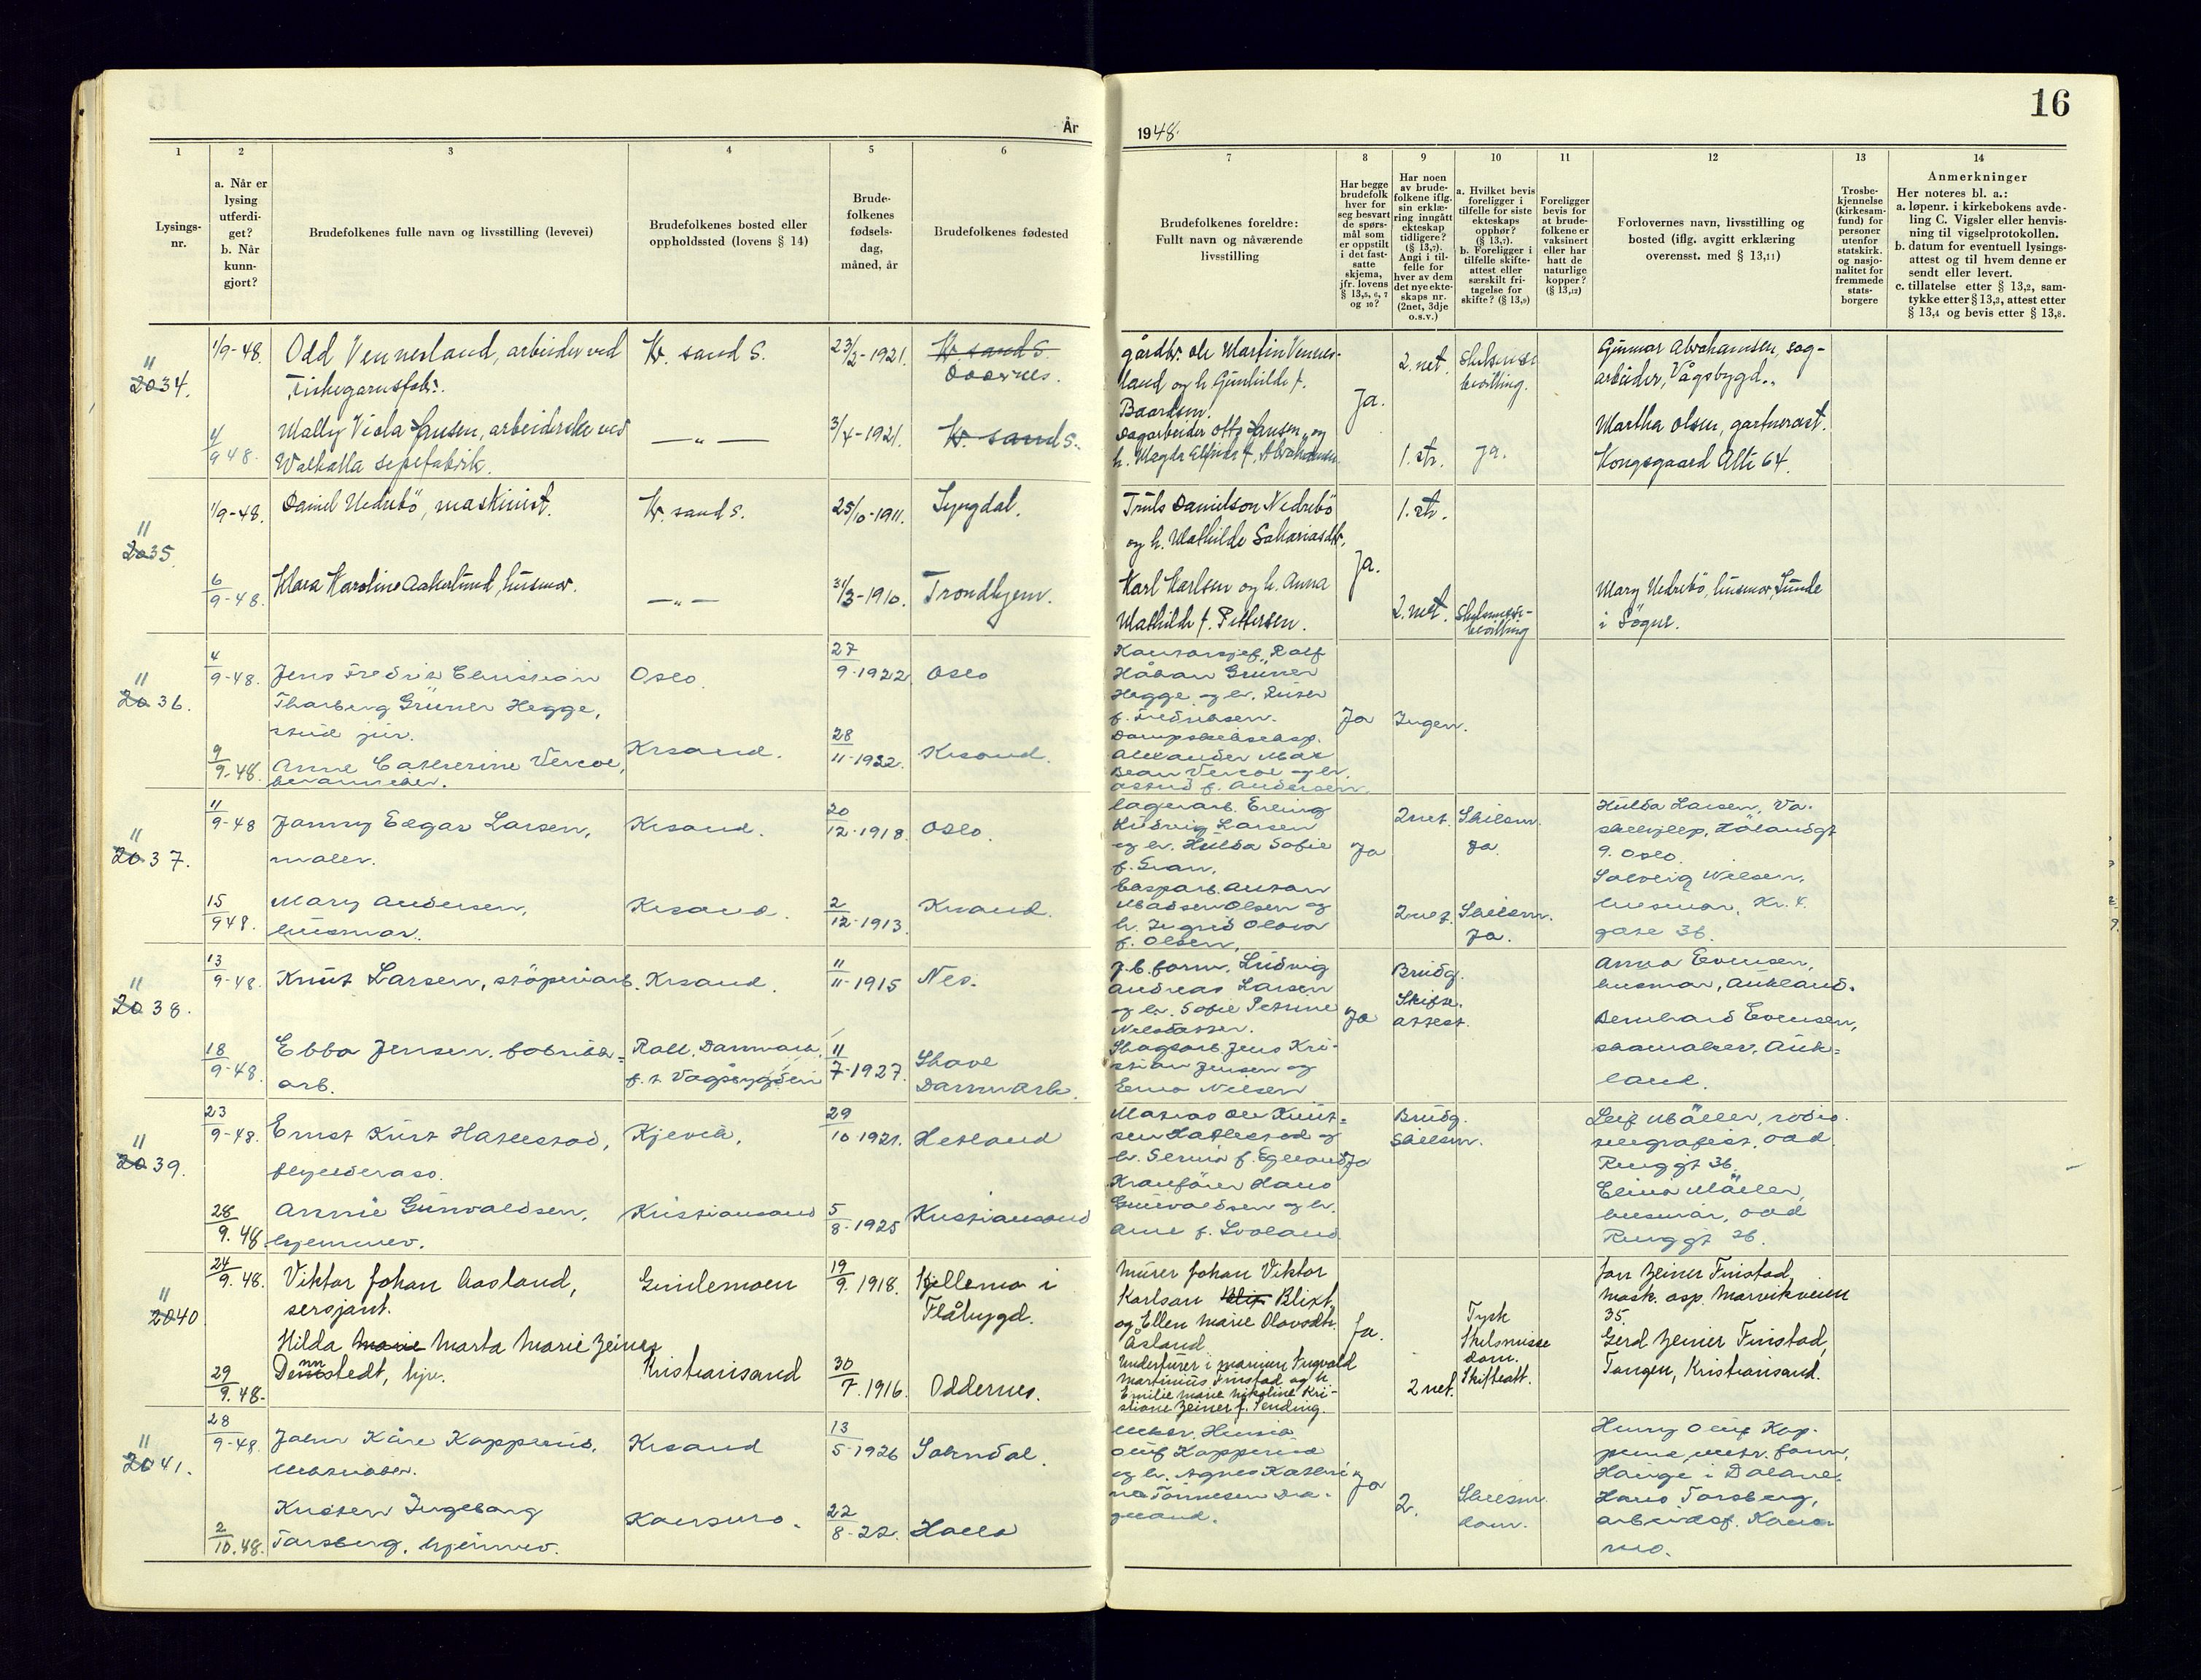 År
1948.
16
1
2
3
4
5
6
7
8
9
10
11
12
13
14
Lysings-
nr.
a. Når er
lysing
utferdi-
get?
b. Når
kunn-
gjort?
Brudefolkenes fulle navn og livsstilling (levevei)
Brudefolkenes bosted eller
oppholdssted (lovens § 14)
Brude-
folkenes
fødsels-
dag,
måned, år
Brudefolkenes fødested
Brudefolkenes foreldre:
Fullt navn og nåværende
livsstilling
Har begge
brudefolk
hver for
seg besvart
de spørs-
mål som
er oppstilt
i det fast-
satte
skjema,
jfr. lovens
§ 13,5, 6, 7
og 10?
Har noen
av brude-
folkene iflg.
sin erklæ-
ring inngått
ekteskap
tidligere?
(§ 13,7).
Angi i til-
felle for
hver av dem
det nye ekte-
skaps nr.
(2net, 3dje
o.s.v.)
a. Hvilket bevis
foreligger i
tilfelle for siste
ekteskaps
opphør?
(§ 13,7).
b. Foreligger i
tilfelle skifte-
attest eller
særskilt fri-
tagelse for
skifte? (§ 13,9)
Foreligger
bevis for
at brude-
folkene er
vaksinert
eller har
hatt de
naturlige
kopper?
(§ 13,12)
Forlovernes navn, livsstilling og
bosted (iflg. avgitt erklæring
overensst. med § 13,11)
Trosbe-
kjennelse
(kirkesam-
fund) for
personer
utenfor
statskirk.
og nasjo-
nalitet for
fremmede
stats-
borgere
Anmerkninger
Her noteres bl. a.:
a. løpenr. i kirkebokens avde-
ling C. Vigsler eller henvis-
ning til vigselprotokollen.
b. datum for eventuell lysings-
attest og til hvem denne er
sendt eller levert.
c. tillatelse etter § 13,2, sam-
tykke etter § 13,3, attest etter
§ 13,4 og bevis etter § 13,8.
11
2034.
1/9-48.
Odd Vennesland, arbeider ved
Fiskegarnsfabr.
Kr. sand S.
23/2-1921.
Kr. sand S.
Oddernes.
gårdbr. Ole Martin Vennes-
land og h. Gunhilde f.
Baardsen.
Ja.
2. net.
Skilsmisse
bevilling.
Gunnar Abrahamsen, sag-
arbeider, Vågsbygd.
4/9 48.
Mally Viola Hansen, arbeiderske ved
Walhalla sepefabrik.
— „ —
3/4-1921.
Kr. sand S.
Dagarbeider Otto Hansen og
h. Magda Alfhilde f. Abrahamsen.
1. ste.
Ja.
Martha Olsen, gartnerast.
Kongsgaard Alle 64.
11
2035.
1/9-48.
Daniel Nedrebö, maskinist.
Kr. sand S.
25/10-1911.
Lyngdal.
Truls Danielson Nedrebö
og h. Mathilde Sakariasdtr.
Ja.
1. ste.
6/9-48.
Klara Karoline Aakerlund, husmor.
— „ —
31/3-1910.
Trondhjem.
Karl Karlsen og h. Anna
Mathilde f. Pettersen.
2. net.
Skilsmisse-
bevilling
Mary Nedrebö, husmor, Lunde
i Sögne.
11
2036.
4/9-48.
Jens Fredrik Christian
Thorberg Grüner Hegge,
stud jur.
Oslo
27/9-1922
Oslo
Kontorsjef Rolf
Håkon Grüner
Hegge og h.
f. Fredriksen.
Ja
Ingen.
9/9-48.
Anne Catherine Vercoe,
Krsand.
28/11-1922.
Krsand.
Alexander Max
Dean Vercoe og h.
Astrid f. Andersen.
11
2037.
11/9-48
Jonny Edgar Larsen,
maler.
Krsand.
20/12-1918.
Oslo.
lagerarb. Erling
Ludvig Larsen
og h. Hulda Sofie
f. Gran.
Ja
2net.
Skilsm.
Ja.
Hulda Larsen, Va-
skehjelp, Hölandsgt
9. Oslo.
15/9 48.
Mary Andersen,
husmor.
Krsand.
2/12-1913.
Krsand.
Anton
Madsen Olsen og
h. Ingrid Olova
f. Olsen.
2net.
Skilsm.
Ja.
Solveig Nilsen,
husmor, Kr. 4.
gate 36.
11
2038.
13/9-48.
Knut Larsen, stöperiarb.
Krsand.
11/11-1915
Nes.
J.b. form. Ludvig
Andreas Larsen
og h. Sofie Petrine
Ja
Brudg.
Skifte.
attest.
Anna Evensen,
husmor, Aukland.
18/9-48.
Ebba Jensen, fabrikk-
arb.
Roll, Danmark,
f. t. Vågsbygden
11/7-1927.
Skave
Danmark.
Skogsarb. Jens Kri-
stian Jensen og
Erna Nilsen
Bernhard Evensen,
skomaker, Auk-
land.
11
2039.
23/9-48.
Ernst Kurt Hatlestad,
flylederass.
Kjevik,
29/10-1921.
Hetland
Matias Ole Knut-
sen Hatlestad og
h. Serina f. Egeland
Ja
Brudg.
Skilsm.
Leif Möller, radio-
telegrafist, Odd
Ruuggt 36.
28/9. 48.
Annie Gunvaldsen,
hjemmev.
Kristiansand
5/8-1925
Kristiansand
Kranförer Hans
Gunvaldsen og h.
Ane f. Svoland.
Elina Möller,
husmor, Odd
Ruuggt 36.
11
2040
24/9. 48.
Viktor Johan Aasland,
sersjant.
Gimlemoen
19/9. 1918.
Kjellemo i
Flåbygd.
Murer Johan Viktor
Karlsson Blix Blixt,
og Ellen Marie Olavsdtr.
Åsland
Ja.
Tysk
Skilsmisse
dom.
Skifteatt.
Jon Zeiner Finstad,
mask. asp. Marvikveien
35.
Hilda Marie Marta Marie Zeiner
Dennstedt, hjv.
29/9. 48.
Kristiansand
30/7. 1916.
Oddernes.
Underfurer i marinen Ingvald
Martinius Finstad og h.
Emilie Marie Nikoline Kri-
stiane Zeiner f. Sending.
2 net.
Gerd Zeiner Finstad,
Tangen, Kristiansand.
11
2041.
28/9-48.
John Kåre Kopperud,
Krsand
13/5-1926
Sokndal.
Oluf Kopperud
og h. Agnes Kathri
ne Tönnesen Dra-
geland.
Ja
Henry Oluf Kop-
Hauge i Dalane.
2/10. 48.
Kristen Ingeborg
Torsberg, hjemmev.
22/8-22.
2.
Skilsm.
dom.
Hans Torsberg,